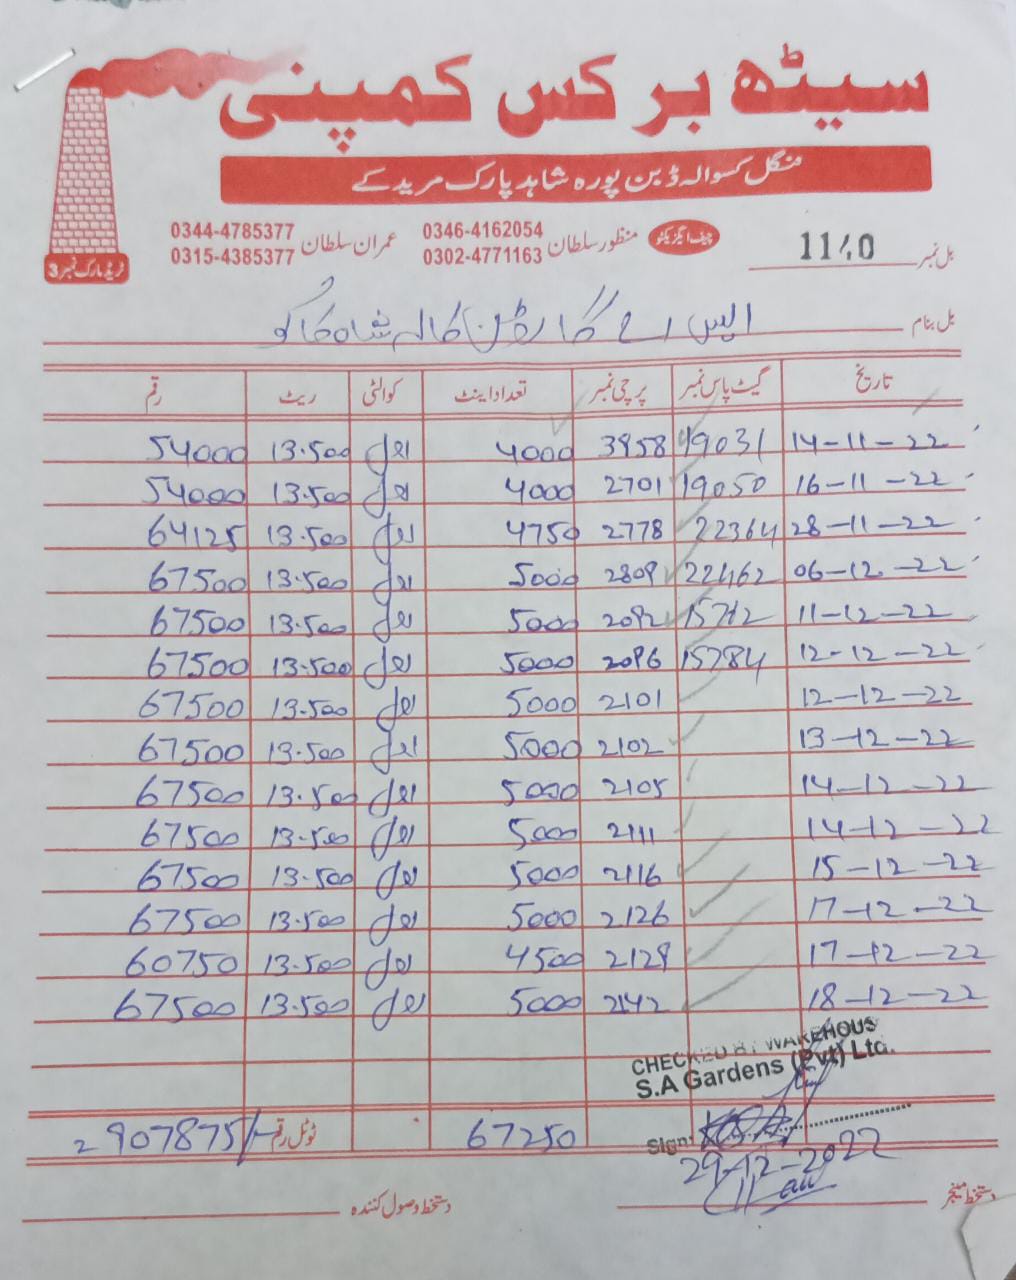 سیٹھ برکس کمپنی
منگل کسوالہ ڈبن پورہ شاہد پارک مریدکے
چیف ایگزیکٹو منظور سلطان 0346-4162054 0302-4771163 عمران سلطان 0344-4785377 0315-4385377
ٹریڈ مارک نمبر 3
بل نمبر 1140
بل بنام ایس اے گارڈن کالا شاہ کاکو
تاریخ گیٹ پاس نمبر پرچی نمبر تعداد اینٹ کوالٹی ریٹ رقم
14-11-22 19031 3958 4000 اول 13.500 54000
16-11-22 19050 2701 4000 اول 13.500 54000
28-11-22 22364 2778 4750 اول 13.500 64125
06-12-22 22462 2809 5000 اول 13.500 67500
11-12-22 15712 2092 5000 اول 13.500 67500
12-12-22 15784 2096 5000 اول 13.500 67500
12-12-22 2101 5000 اول 13.500 67500
13-12-22 2102 5000 اول 13.500 67500
14-12-22 2105 5000 اول 13.500 67500
14-12-22 2111 5000 اول 13.500 67500
15-12-22 2116 5000 اول 13.500 67500
17-12-22 2126 5000 اول 13.500 67500
17-12-22 2129 4500 اول 13.500 60750
18-12-22 2142 5000 اول 13.500 67500
CHECKED BY WAREHOUS
S.A Gardens (Pvt) Ltd.
67250 ٹوٹل رقم 2907875/-
Sign:
29-12-2022
دستخط منیجر دستخط وصول کنندہ